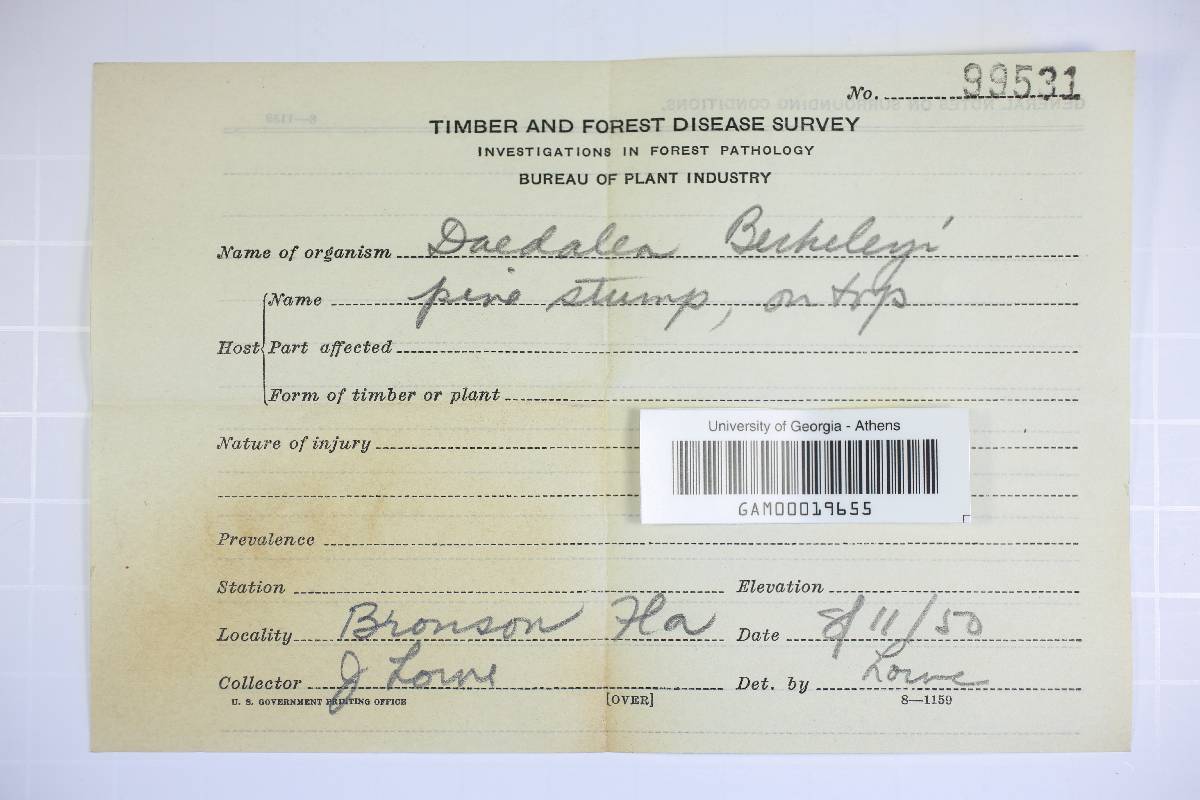 No. 99531
TIMBER AND FOREST DISEASE SURVEY
INVESTIGATIONS IN FOREST PATHOLOGY
BUREAU OF PLANT INDUSTRY
Name of organism Daedalea Berkeleyi
Host
Name pine stump, on top
Part affected
Form of timber or plant
Nature of injury
University of Georgia - Athens
GAM00019655
Prevalence
Station Elevation
Locality Bronson Fla Date 8/11/50
Collector J Lowe Det. by Lowe
U. S. GOVERNMENT PRINTING OFFICE [OVER] 8—1159